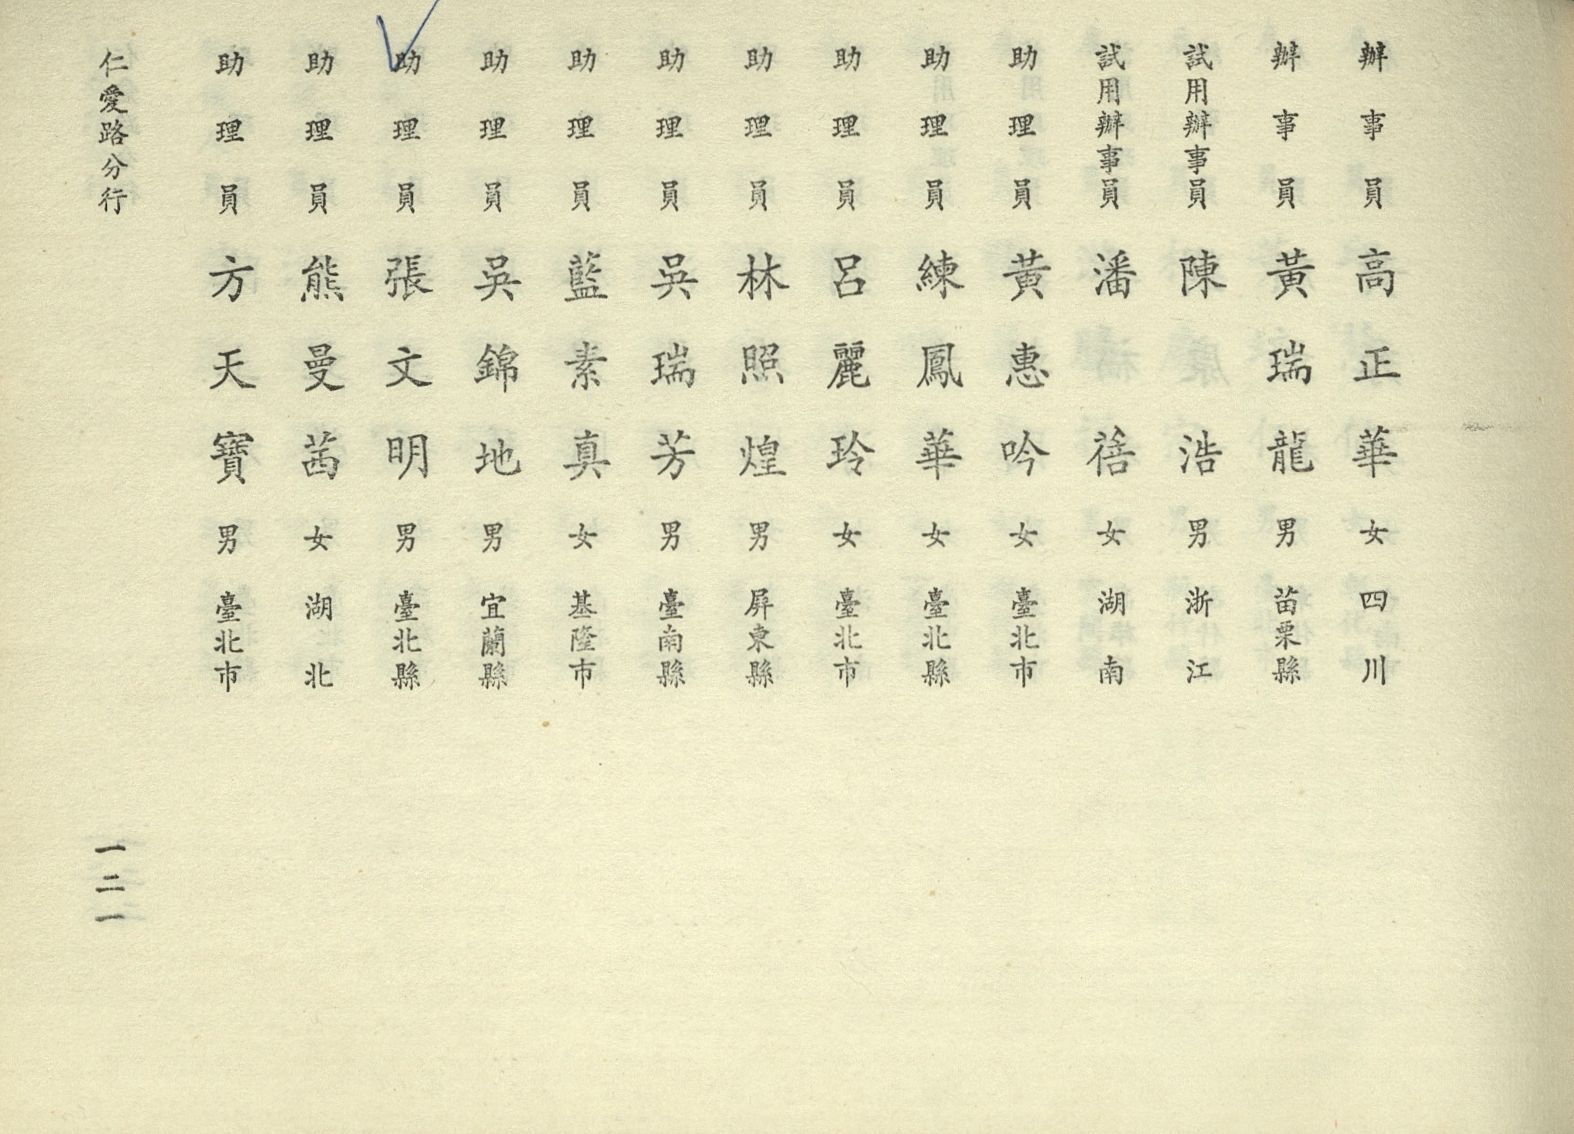 辦事員 高正華 女 四川
辦事員 黃瑞龍 男 苗栗縣
試用辦事員 陳浩 男 浙江
試用辦事員 潘蓓 女 湖南
助理員 黃惠吟 女 臺北市
助理員 練鳳華 女 臺北縣
助理員 呂麗玲 女 臺北市
助理員 林照煌 男 屏東縣
助理員 吳瑞芳 男 臺南縣
助理員 藍素真 女 基隆市
助理員 吳錦地 男 宜蘭縣
助理員 張文明 男 臺北縣
助理員 熊曼茜 女 湖北
助理員 方天寶 男 臺北市
仁愛路分行
一二一